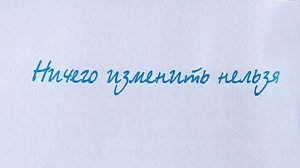 Ничего изменить нельзя